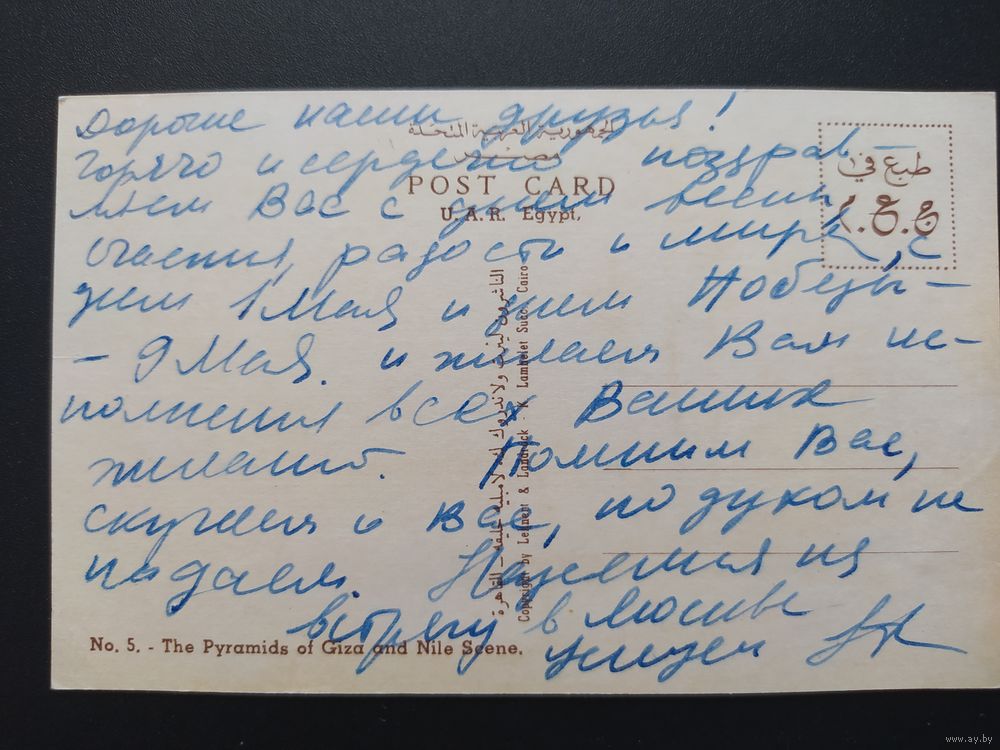 Дорогие наши друзья!
الجمهورية العربية المتحدة
مصر
Горячо и сердечно поздрав-
POST CARD
ляем Вас с днем весны
U. A. R. Egypt.
طبع فى
ج.ع.م
счастия, радости и мира, с
днем 1 Мая и днем Победы -
- 9 Мая. и желаем Вам ис-
полнения всех Ваших
желаний. Помним Вас,
скучаем о Вас, но духом не
падаем. Надеемся на
встречу в Москве
No. 5. - The Pyramids of Giza and Nile Scene.
Copyright by Lehnert & Landrock - K. Lambelet Succ. Cairo
www.ay.by